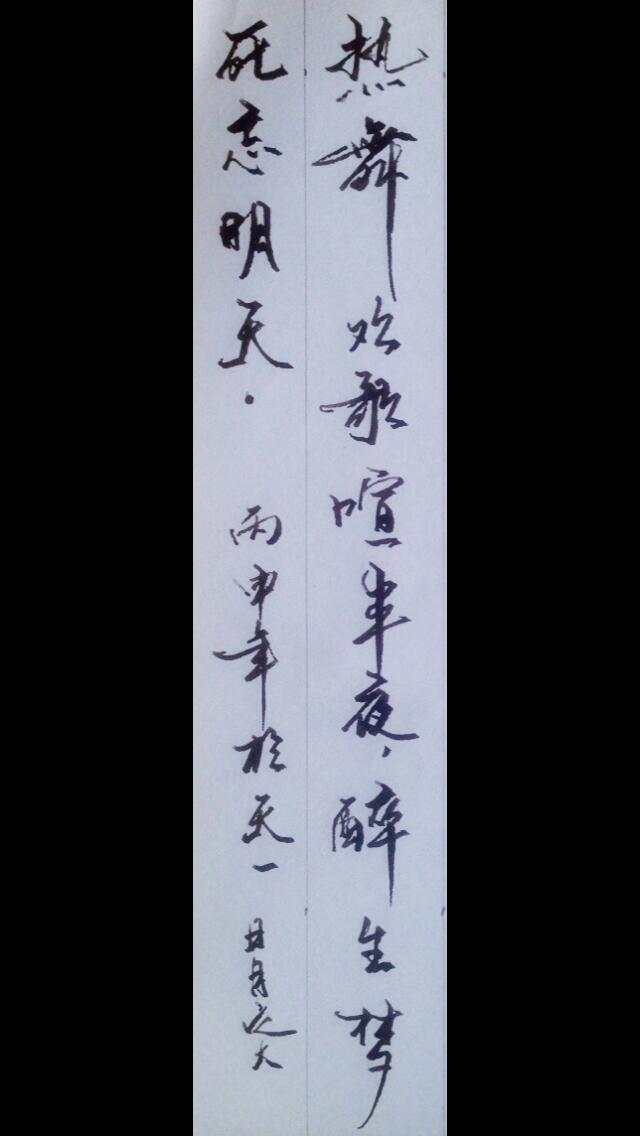 热舞欢歌喧半夜，醉生梦
死忘明天．丙申年於天一 日月远大